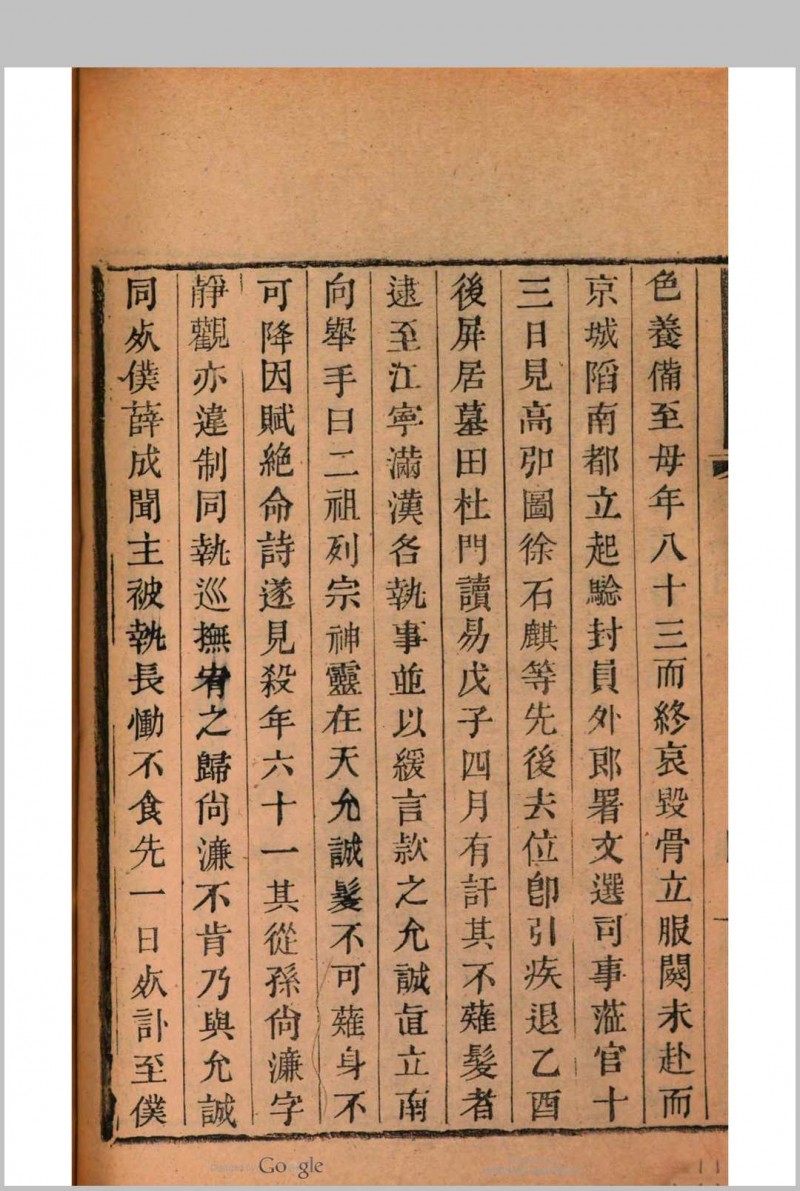 色養備至母年八十三而終哀毀骨立服闋未赴而
京城䧟南都立起驗封員外郎署文選司事蒞官十
三日見高弘圖徐石麒等先後去位卽引疾退乙酉
後屏居墓田杜門讀易戊子四月有訐其不薙髮者
逮至江寧滿漢各執事並以緩言款之允誠直立南
向舉手曰二祖列宗神靈在天允誠髮不可薙身不
可降因賦絶命詩遂見殺年六十一其從孫尙濂字
靜觀亦違制同執巡撫宥之歸尙濂不肯乃與允誠
同㱠僕薛成聞主被執長慟不食先一日㱠訃至僕
Google